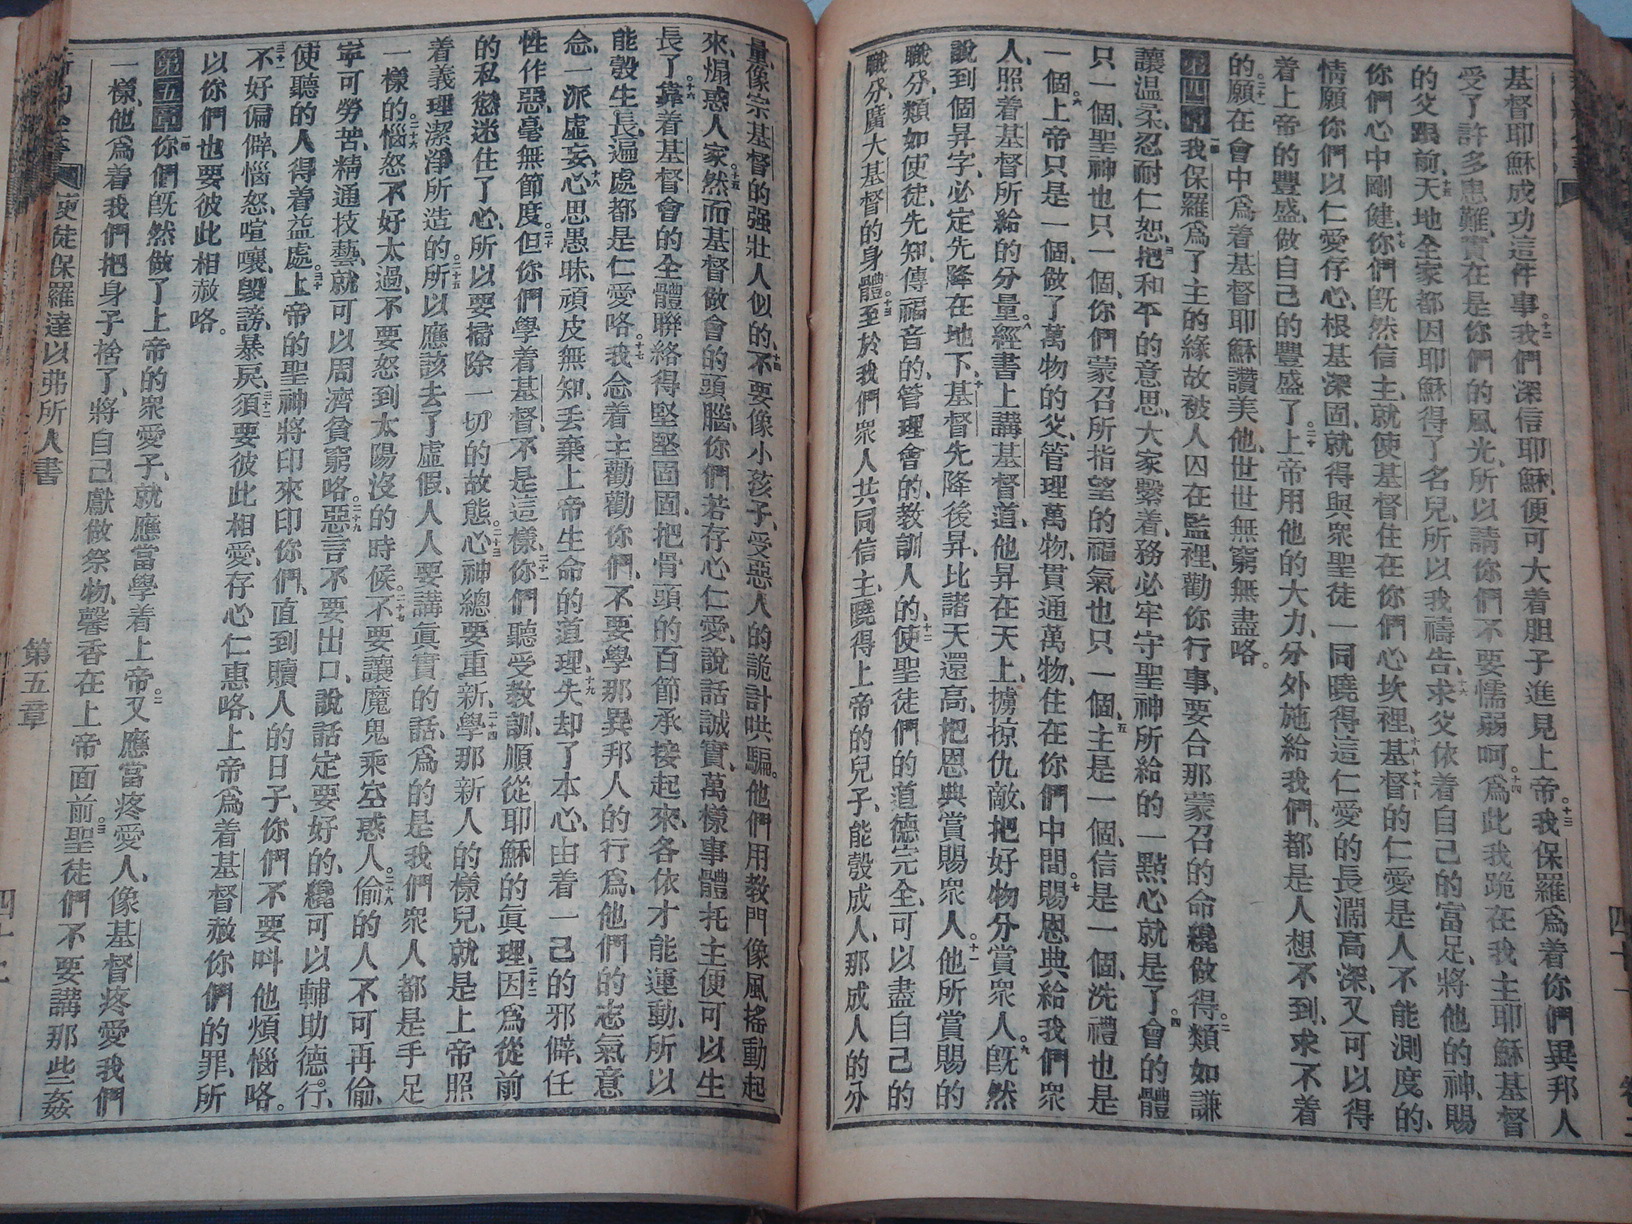 基督耶穌成功這件事、十二我們深信耶穌、便可大着胆子進見上帝。十三我保羅爲着你們異邦人
受了許多患難、實在是你們的風光、所以請你們不要懦弱呵。十四爲此我跪在我主耶穌基督
的父跟前、十五天地全家都因耶穌得了名兒、所以我禱告、十六求父依着自己的富足、將他的神、賜
你們心中剛健、十七你們旣然信主、就使基督住在你們心坎裡、十八十九基督的仁愛是人不能測度的、
情願你們以仁愛存心、根基深固、就得與衆聖徒一同曉得這仁愛的長濶高深、又可以得
着上帝的豐盛、做自己的豐盛了、二十上帝用他的大力、分外施給我們、都是人想不到、求不着
的、二十一願在會中爲着基督耶穌讚美他、世世無窮無盡咯。
第四章一我保羅爲了主的緣故、被人囚在監裡、勸你行事、要合那蒙召的命纔做得。二類如謙
讓溫柔、忍耐仁恕、三把和平的意思、大家繫着、務必牢守聖神所給的一點心就是了、四會的體
只一個、聖神也只一個、你們蒙召所指望的福氣也只一個、五主是一個、信是一個、洗禮也是
一個、六上帝只是一個、做了萬物的父、管理萬物、貫通萬物、住在你們中間。七賜恩典給我們衆
人、照着基督所給的分量、八經書上講基督道、他昇在天上、擄掠仇敵、把好物分賞衆人。九旣然
說到個昇字、必定先降在地下、十基督先降後昇、比諸天還高、把恩典賞賜衆人。十一他所賞賜的
職分、類如使徒、先知、傳福音的、管理會的、教訓人的、十二使聖徒們的道德完全、可以盡自己的
職分、廣大基督的身體、十三至於我們衆人共同信主、曉得上帝的兒子、能彀成人、那成人的分
量、像宗基督的强壯人似的、十四不要像小孩子、受惡人的詭計哄騙。他們用教門像風搖動起
來、煽惑人家、十五然而基督做會的頭腦、你們若存心仁愛、說話誠實、萬樣事體托主、便可以生
長了、十六靠着基督會的全體聯絡得堅堅固固、把骨頭的百節承接起來、各依才能運動、所以
能彀生長、遍處都是仁愛咯。十七我念着主勸勸你們、不要學那異邦人的行爲、他們的志氣意
念、一派虛妄、十八心思愚昧、頑皮無知、丟棄上帝生命的道理、十九失却了本心、由着一己的邪僻、任
性作惡、毫無節度。二十但你們學着基督、不是這樣、二十一你們聽受教訓、順從耶穌的眞理、二十二因爲從前
的私慾迷住了心、所以要擯除一切的故態。二十三心神總要重新、二十四學那新人的樣兒、就是上帝照
着義理潔淨所造的、二十五所以應該去了虛假、人人要講眞實的話、爲的是我們衆人都是手足
一樣的、二十六惱怒不好太過、不要怒到太陽沒的時候。二十七不要讓魔鬼乘空惑人。二十八偷的人不可再偷、
寧可勞苦、精通技藝、就可以周濟貧窮咯。二十九惡言不要出口、說話定要好的、纔可以輔助德行、
使聽的人得着益處、三十上帝的聖神將印來印你們、直到贖人的日子、你們不要呌他煩惱咯。
三十一不好偏僻、惱怒、喧嚷、毀謗、暴戾、三十二須要彼此相愛、存心仁惠咯、上帝爲着基督赦你們的罪、所
以你們也要彼此相赦咯。
第五章一你們旣然做了上帝的衆愛子、就應當學着上帝、二又應當疼愛人、像基督疼愛我們
一樣、他爲着我們把身子捨了、將自己獻做祭物、馨香在上帝面前。三聖徒們不要講那些姦
使徒保羅達以弗所人書　第五章